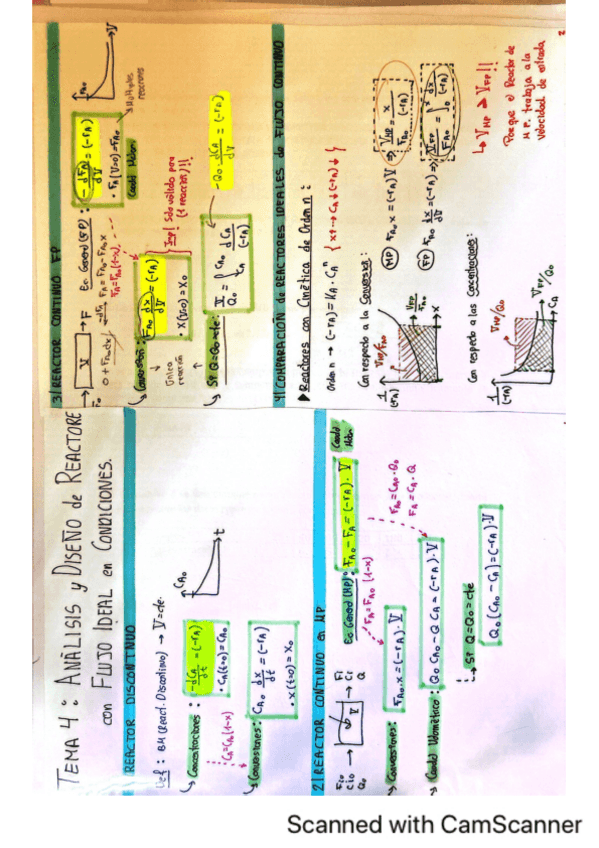 TEMA 4: ANÁLISIS y DISEÑO de REACTORE
con FLUJO IDEAL en CONDICIONES.
REACTOR DISCONTINUO
Def: BM (React. Discontinuo) → V=cte.
↳ Concentraciones: -dCA/dt = (-rA)
• CA(t=0) = CA0
CA0
t
CA=CA0(1-x)
↳ Conversiones: CA0 dx/dt = (-rA)
• x(t=0) = x0
2| REACTOR CONTINUO en MP
Fi0
Ci0
Q0
V
Fi
Ci
Q
Ec General (MP): FA0 - FA = (-rA)·V
Caudal Molar
FA = FA0 (1-x)
↳ Conversiones: FA0·x = (-rA)·V
FA0 = CA0·Q0
FA = CA·Q
↳ Caudal Volumétrico: Q0 CA0 - Q CA = (-rA)·V
→ Si Q=Q0=cte
Q0 (CA0 - CA) = (-rA)·V
3| REACTOR CONTINUO FP
F0 → V → F
Ec General (FP): -dFA/dV = (-rA)
• FA(V=0) = FA0
Caudal Molar
FA0
V
Múltiples reacciones
FA = FA0 - FA0x
FA = FA0(1-x)
↳ Conversión: FA0 dx/dV = (-rA)
• x(V=0) = x0
Única reacción
Imp! Solo válido para (1 reacción)!!
↳ Si Q=Q0=cte: V/Q0 = ∫ CA0 CA dCA/(-rA)
-Q0 dCA/dV = (-rA)
4| COMPARACIÓN de REACTORES IDEALES de FLUJO CONTINUO
▶ Reactores con Cinética de Orden n:
Orden n → (-rA) = KA·CA^n
{ x↑ → CA↓ (-rA)↓ }
Con respecto a la Conversión:
1/(-rA)
VMP/FA0
VFP/FA0
x
(MP) FA0 x = (-rA) V ⇒ VMP/FA0 = x/(-rA)
(FP) FA0 dx/dV = (-rA) ⇒ VFP/FA0 = ∫ x 0 dx/(-rA)
Con respecto a las Concentraciones:
1/(-rA)
VMP/Q0
VFP/Q0
CA
↳ VMP > VFP!!
Porque el Reactor de
M.P. trabaja a la
velocidad de entrada
2
Scanned with CamScanner